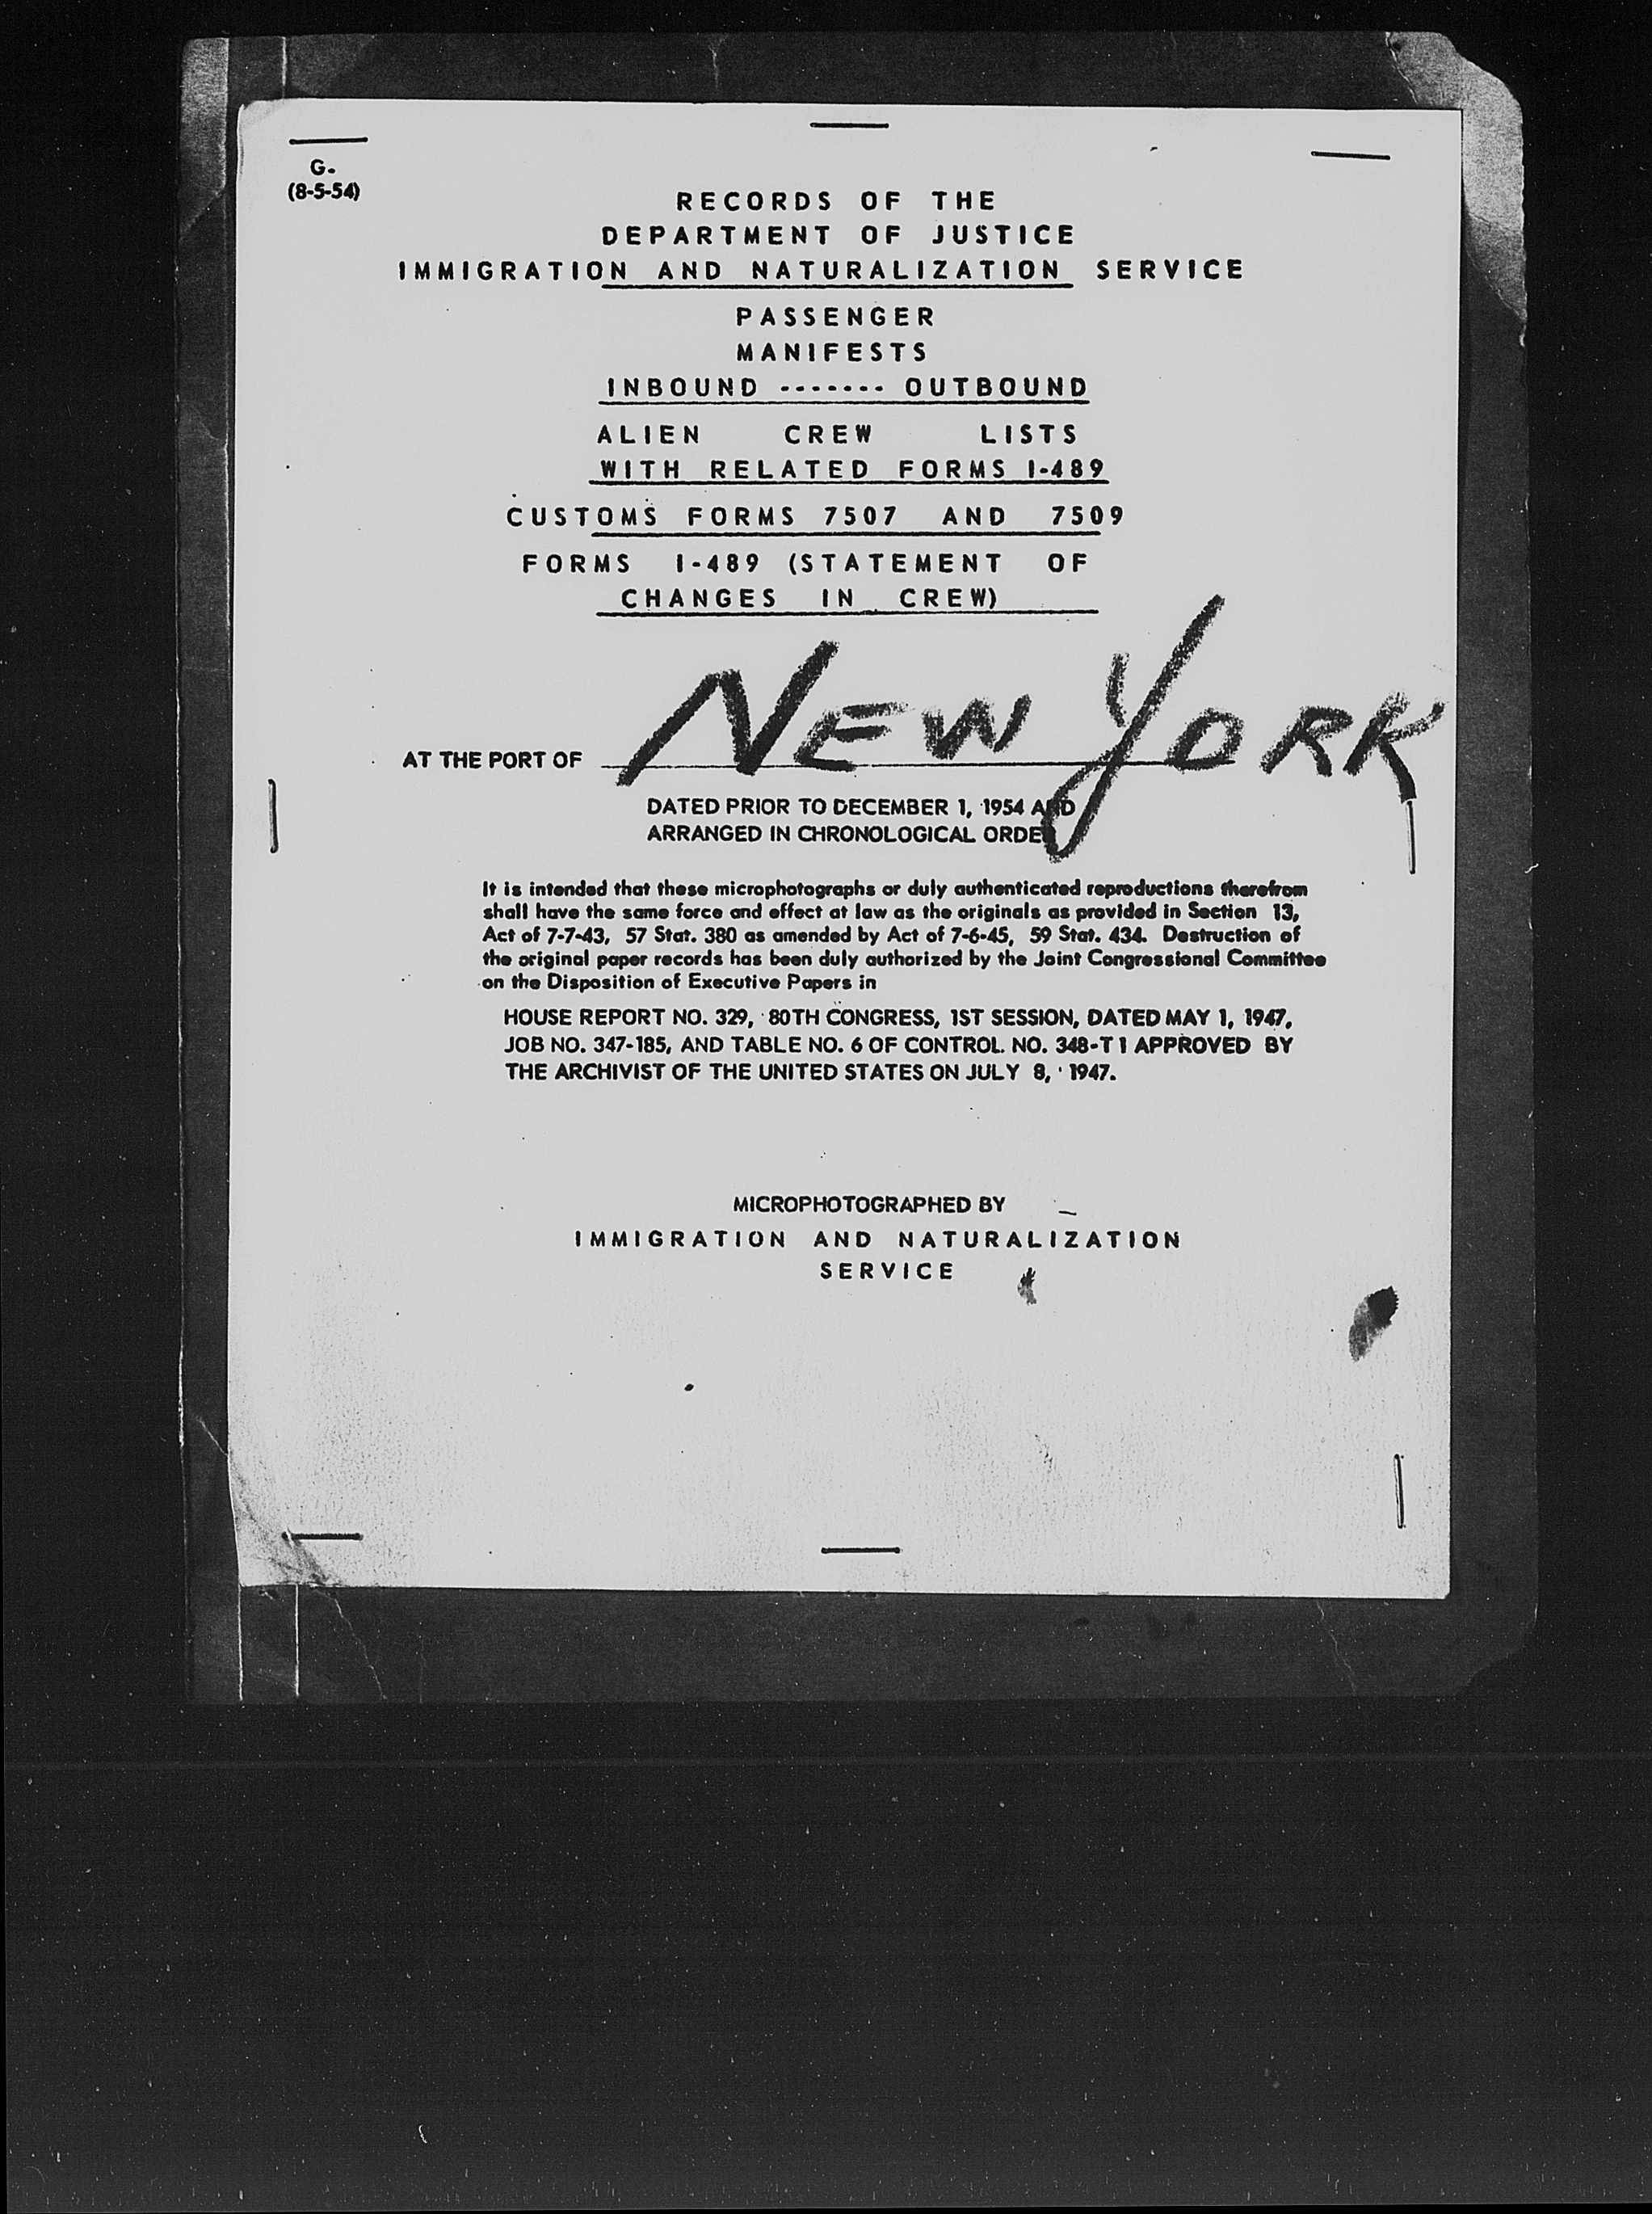 G-
(8-5-54)
RECORDS OF THE
DEPARTMENT OF JUSTICE
IMMIGRATION AND NATURALIZATION SERVICE
PASSENGER
MANIFESTS
INBOUND ------- OUTBOUND
ALIEN CREW LISTS
WITH RELATED FORMS I-489
CUSTOMS FORMS 7507 AND 7509
FORMS I-489 (STATEMENT OF
CHANGES IN CREW)
AT THE PORT OF NEW YORK
DATED PRIOR TO DECEMBER 1, 1954 AND
ARRANGED IN CHRONOLOGICAL ORDER
It is intended that these microphotographs or duly authenticated reproductions therefrom
shall have the same force and effect at law as the originals as provided in Section 13,
Act of 7-7-43, 57 Stat. 380 as amended by Act of 7-6-45, 59 Stat. 434. Destruction of
the original paper records has been duly authorized by the Joint Congressional Committee
on the Disposition of Executive Papers in
HOUSE REPORT NO. 329, 80TH CONGRESS, 1ST SESSION, DATED MAY 1, 1947,
JOB NO. 347-185, AND TABLE NO. 6 OF CONTROL. NO. 348-T1 APPROVED BY
THE ARCHIVIST OF THE UNITED STATES ON JULY 8, 1947.
MICROPHOTOGRAPHED BY
IMMIGRATION AND NATURALIZATION
SERVICE